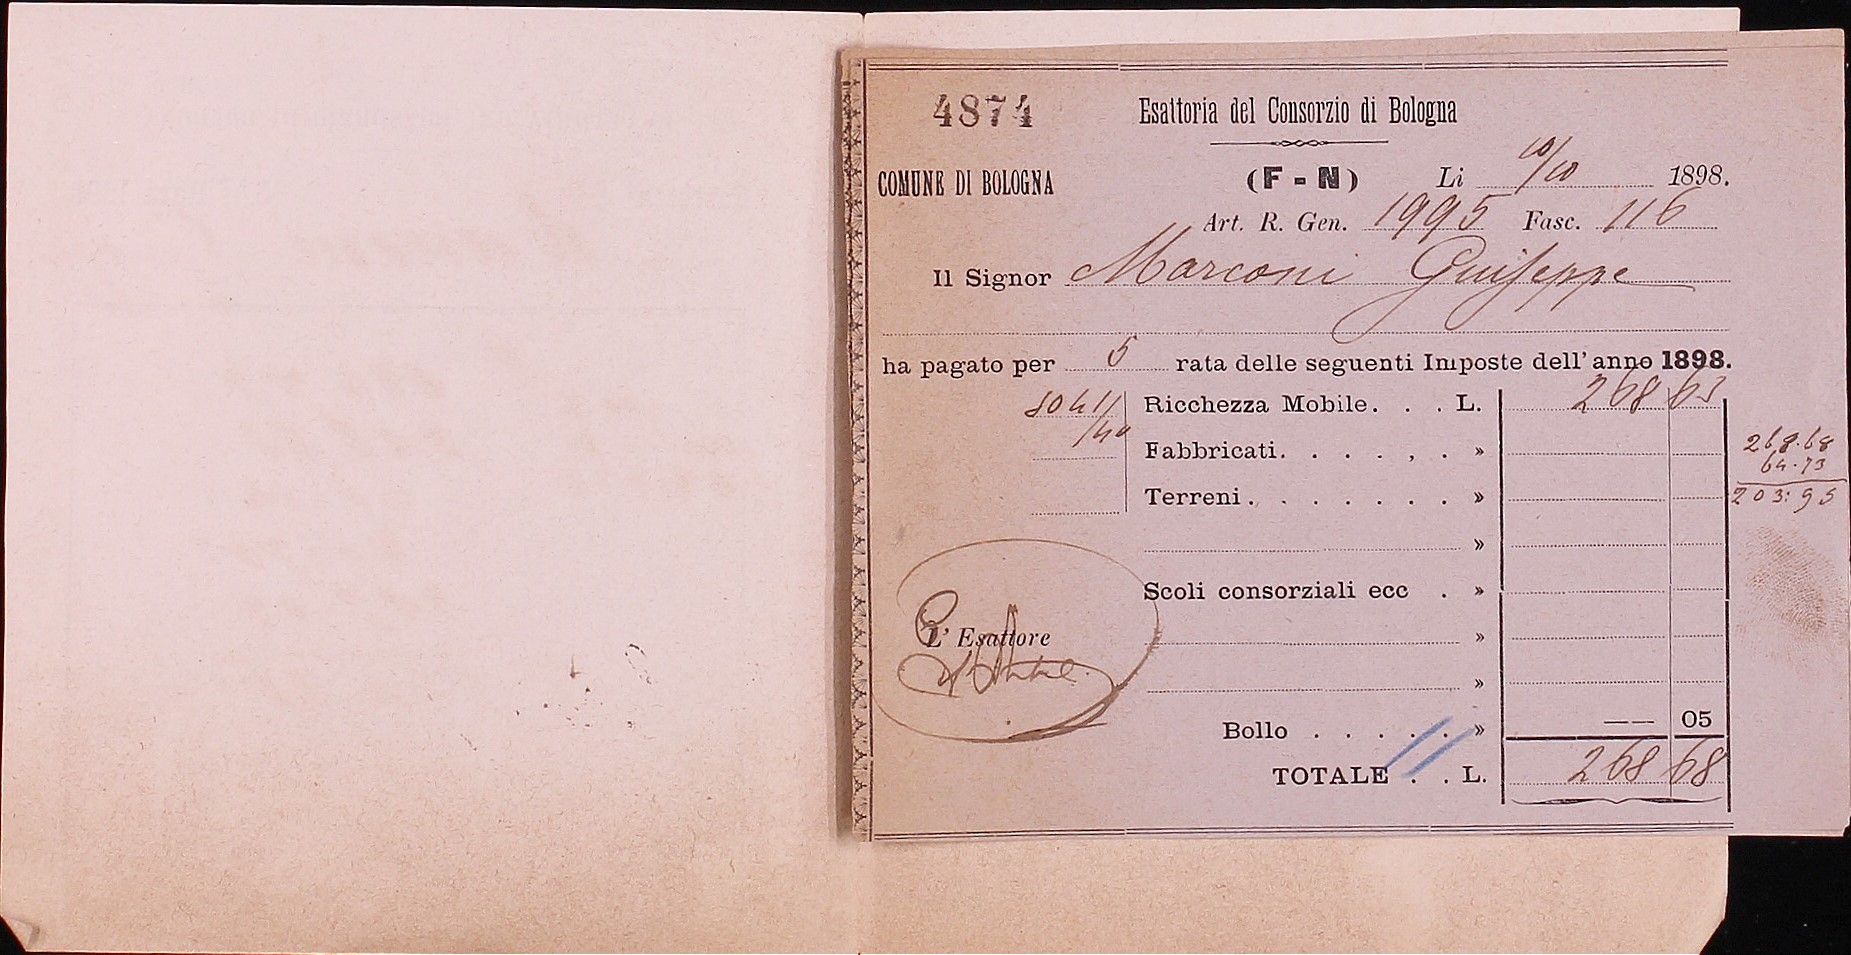 4874 Esattoria del Consorzio di Bologna
COMUNE DI BOLOGNA (F - N) Li 10/10 1898.
Art. R. Gen. 1995 Fasc. 116
Il Signor Marconi Giuseppe
ha pagato per 5 rata delle seguenti Imposte dell' anno 1898.
Ricchezza Mobile. . . L. 268 63
Fabbricati. . . . , . »
Terreni. . . . . . . »
»
Scoli consorziali ecc . »
»
»
Bollo . . . . . » — — 05
TOTALE . . L. 268 68
268.68
64.73
203:95
L' Esattore